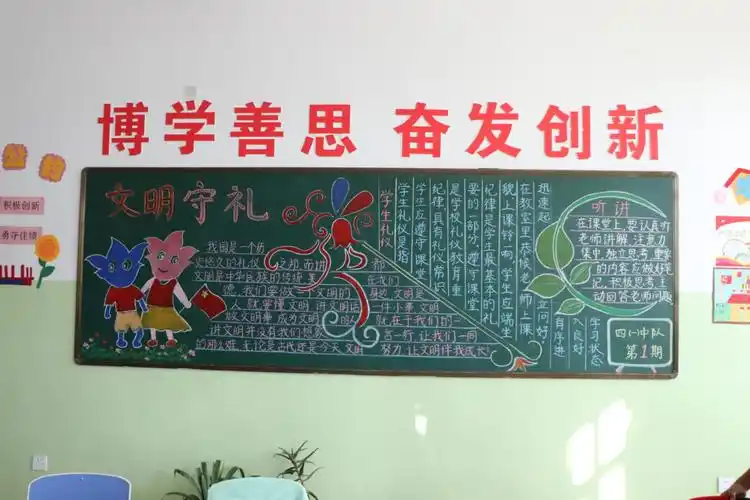 博学善思 奋发创新
积极创新
勇夺佳绩
文明守礼
我国是一个历
史悠久的礼仪之邦 而讲 都
文明是中华民族的传统美 在我们
德 我们要做文明 文明的 身边 文明是
人 就要懂文明 讲文明 件小事 文明
做文明事 成为文明 就在于我们的一
讲文明并没有我们想象 言一行 让我们一同
的那么难 无论是古代还是今天 文明 努力 让文明伴我成长
学生礼仪
学生礼仪是指
学生应遵守课堂
纪律具有礼仪常识
是学校礼仪教育重
要的一部分 遵守课堂
纪律是学生最基本的礼
貌上课铃响 学生应端坐
在教室里 恭候老师上课
迅速起 立问好
有序进
入良好
学习状态
听讲
在课堂上 要认真听
老师讲解 注意力
集中 独立思考 重要
的内容应做好笔
记 积极思考 主
动回答老师问题
四(一)中队
第1期